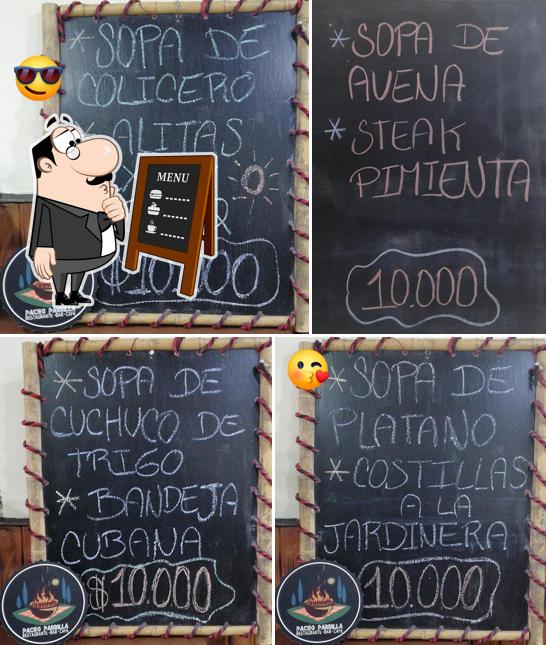 * SOPA DE
COLICERO
* ALITAS
MENU
R
$10.000
PACHO PARRILLA
RESTAURANTE-BAR-CAFE
* SOPA DE
AVENA
* STEAK
PIMIENTA
10.000
* SOPA DE
CUCHUCO DE
TRIGO
* BANDEJA
CUBANA
$10.000
PACHO PARRILLA
RESTAURANTE-BAR-CAFE
* SOPA DE
PLATANO
* COSTILLAS
A LA
JARDINERA
10.000
PACHO PARRILLA
RESTAURANTE-BAR-CAFE